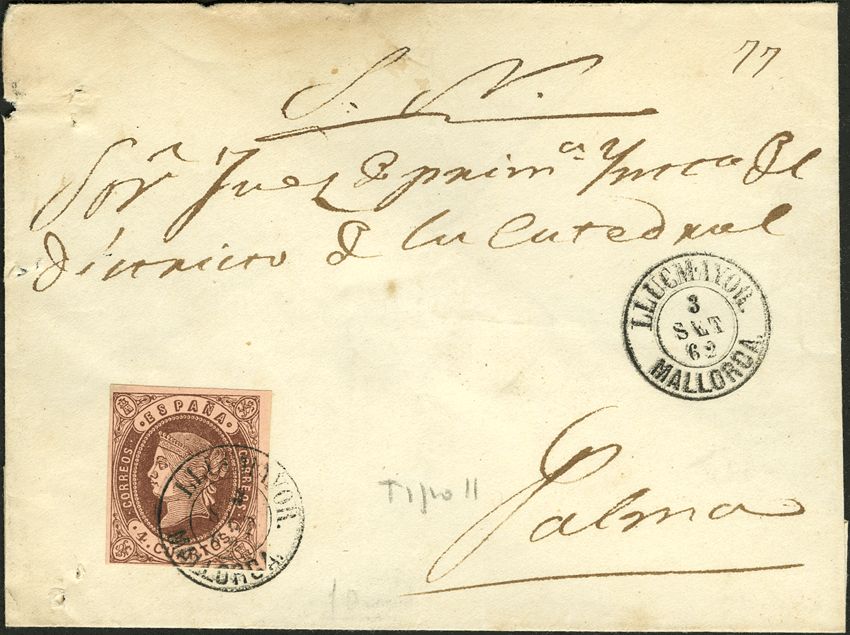 77
S. N.
Sor. Juez de prim.ª Ynsca del
districto de la Catedral
LLUCMAYOR.
3
SET
62
MALLORCA.
· ESPAÑA ·
CORREOS
CORREOS
4. CUARTOS
LLUCMAYOR.
MALLORCA.
Tipo II
Palma
10